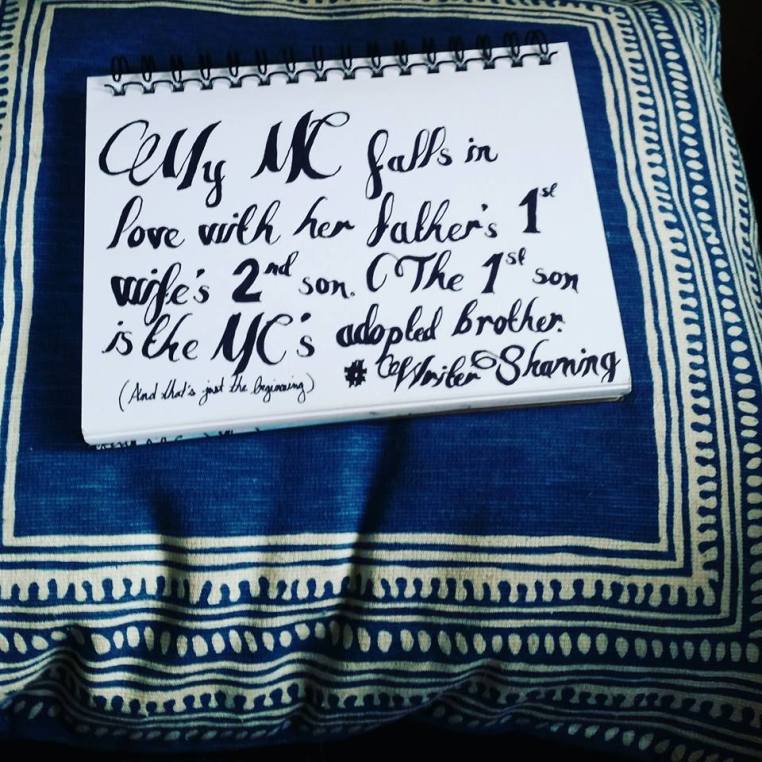 My MC falls in
love with her father's 1st
wife's 2nd son. (The 1st son
is the MC's adopted brother.
(And that's just the beginning)
#WriterShaming